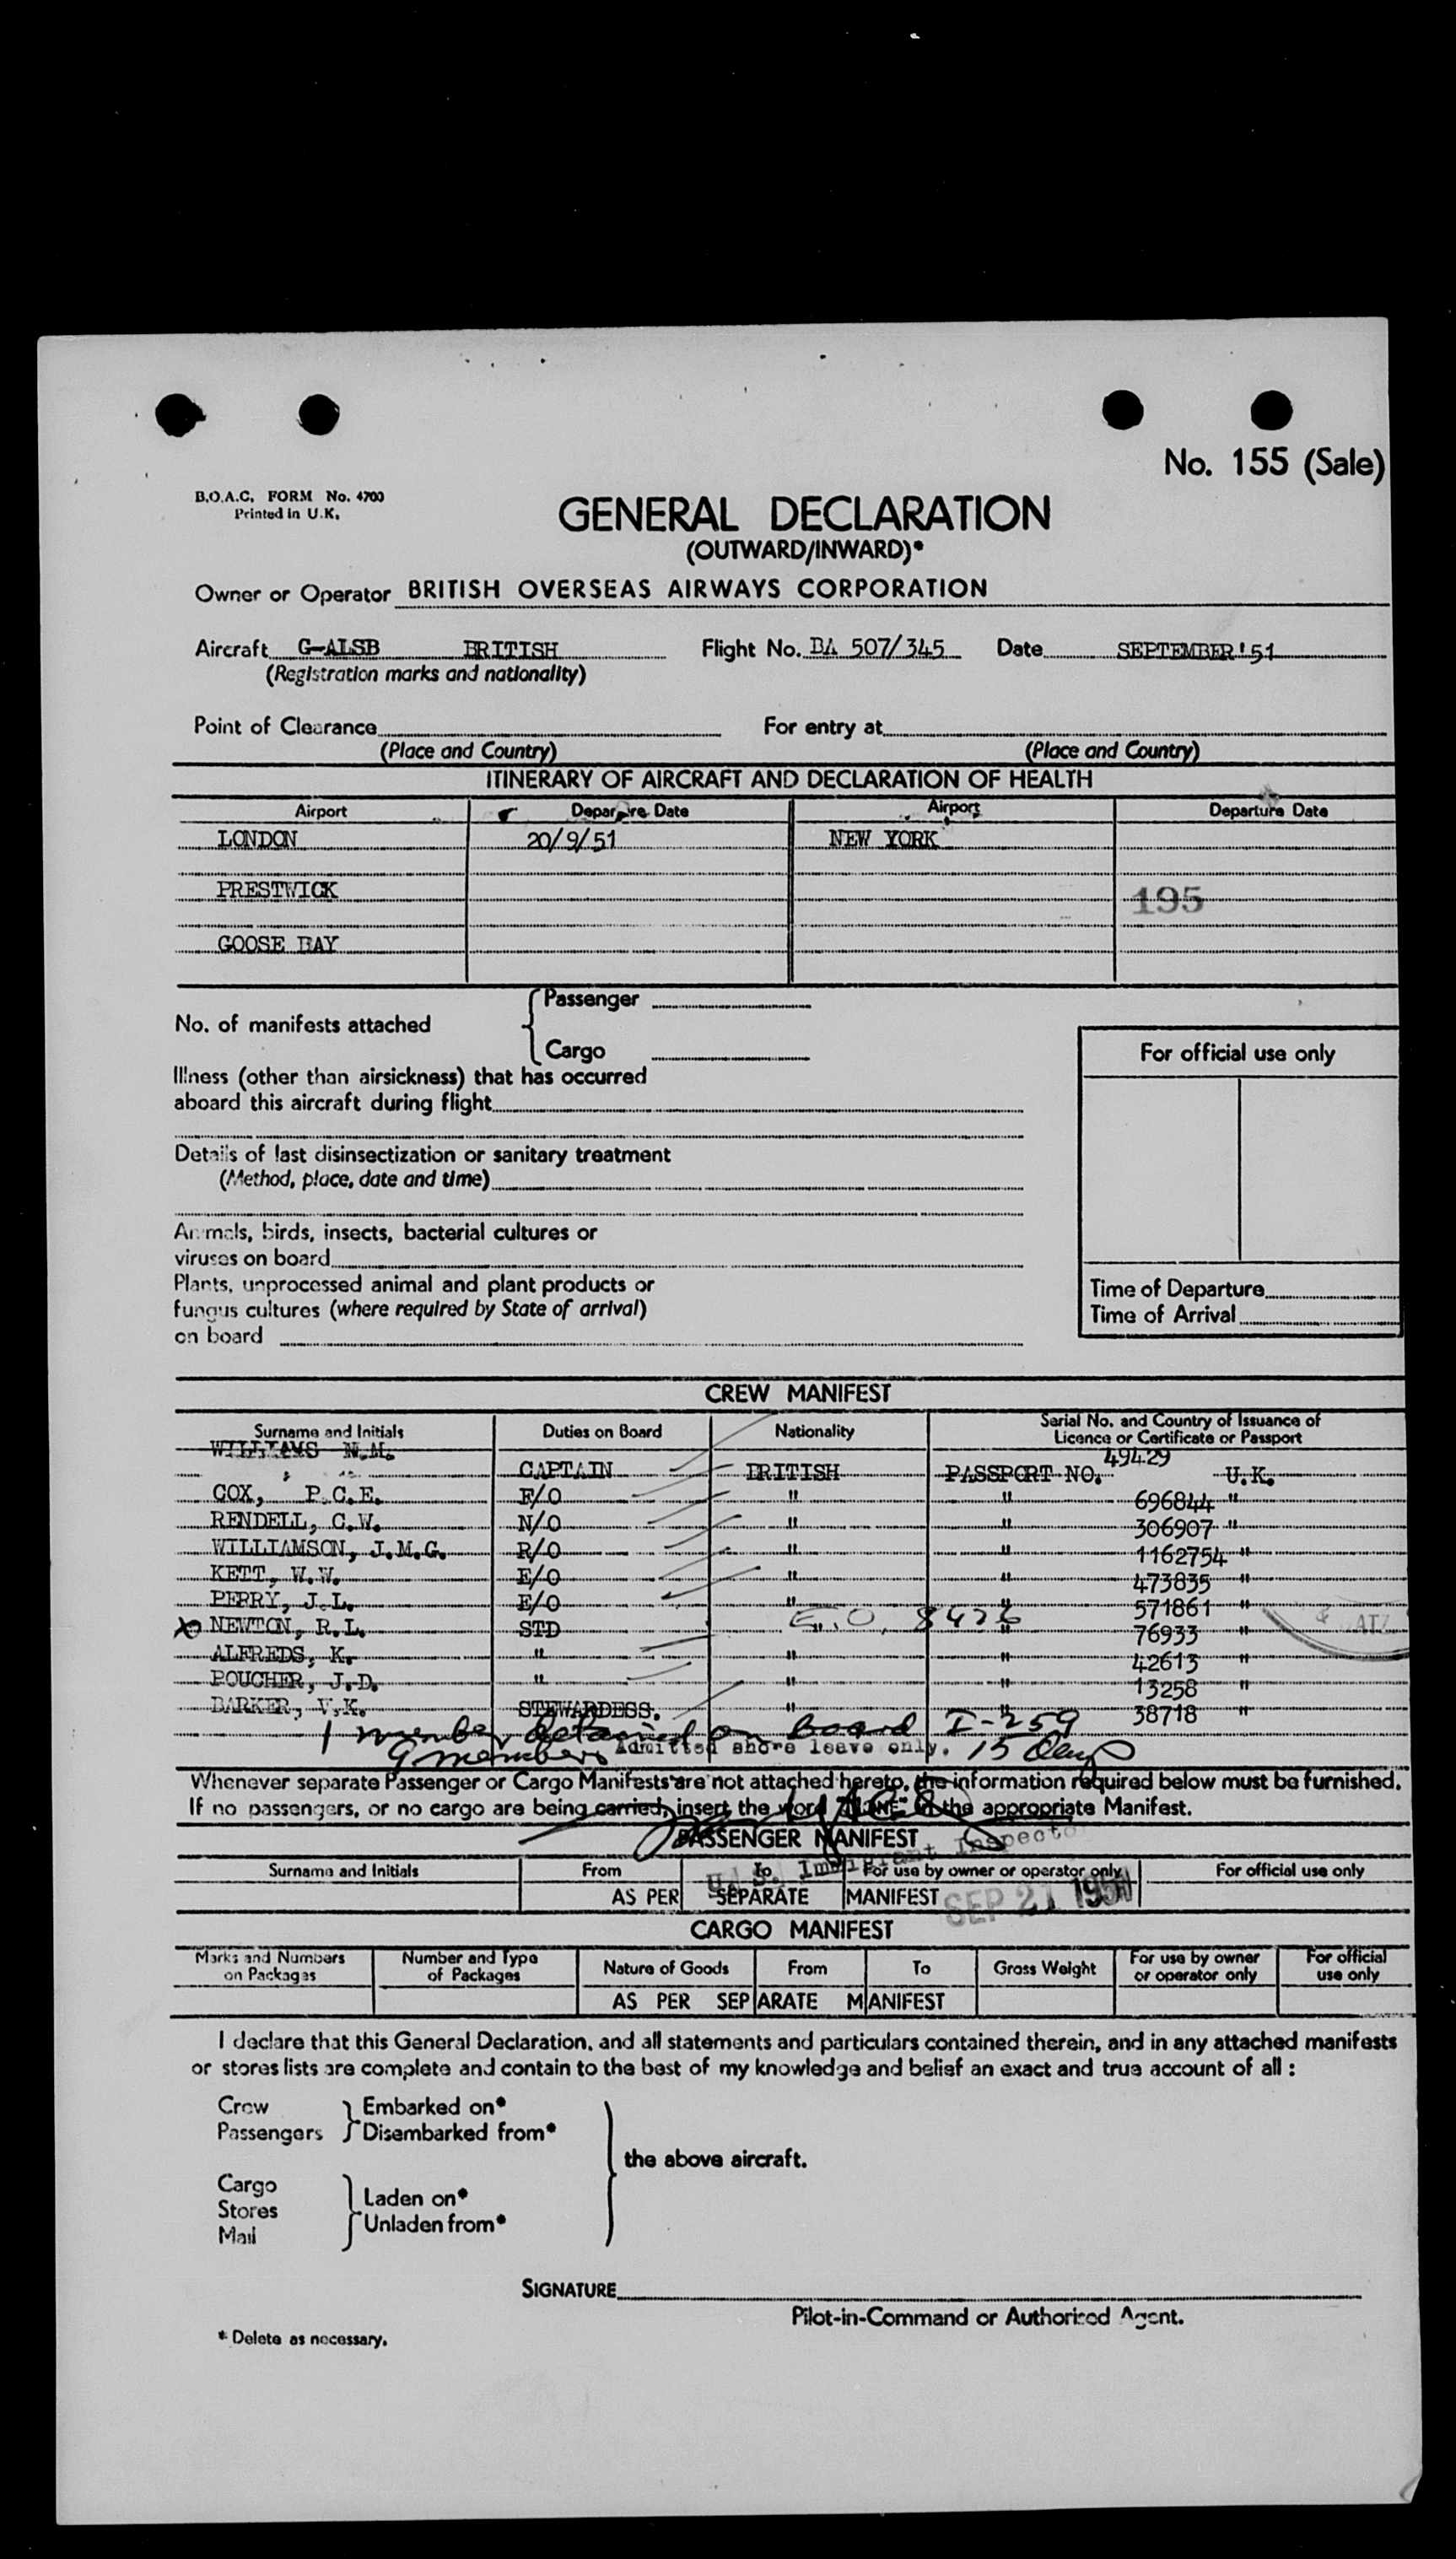 No. 155 (Sale)
B.O.A.C. FORM No. 4700
Printed in U.K.
GENERAL DECLARATION
(OUTWARD/INWARD)*
Owner or Operator BRITISH OVERSEAS AIRWAYS CORPORATION
Aircraft G-ALSB BRITISH Flight No. BA 507/345 Date SEPTEMBER'51
(Registration marks and nationality)
Point of Clearance For entry at
(Place and Country) (Place and Country)
ITINERARY OF AIRCRAFT AND DECLARATION OF HEALTH
Airport Departure Date Airport Departure Date
LONDON 20/9/51 NEW YORK
PRESTWICK 195
GOOSE BAY
No. of manifests attached Passenger
Cargo
For official use only
Illness (other than airsickness) that has occurred
aboard this aircraft during flight
Details of last disinsectization or sanitary treatment
(Method, place, date and time)
Animals, birds, insects, bacterial cultures or
viruses on board
Plants, unprocessed animal and plant products or
fungus cultures (where required by State of arrival)
on board
Time of Departure
Time of Arrival
CREW MANIFEST
Surname and Initials Duties on Board Nationality Serial No. and Country of Issuance of
Licence or Certificate or Passport
WILLIAMS N.M. CAPTAIN BRITISH PASSPORT NO. 49429 U.K.
COX, P.C.E. F/O " " 696844 "
RENDELL, C.W. N/O " " 306907 "
WILLIAMSON, J.M.G. R/O " " 1162754 "
KETT, W.W. E/O " " 473835 "
PERRY, J.L. E/O " " 571861 "
X NEWTON, R.L. STD E.O. 8426 " 76933 "
ALFREDS, K. " " " 42613 "
POUCHER, J.D. " " " 13258 "
BARKER, V.K. STEWARDESS. " " 38718 "
1 member detained on board I-259
9 members Admitted shore leave only. 15 Days
Whenever separate Passenger or Cargo Manifests are not attached hereto, the information required below must be furnished.
If no passengers, or no cargo are being carried, insert the word "NONE" in the appropriate Manifest.
PASSENGER MANIFEST
U.S. Immigrant Inspector
Surname and Initials From To For use by owner or operator only For official use only
AS PER SEPARATE MANIFEST
SEP 21 1951
CARGO MANIFEST
Marks and Numbers on Packages Number and Type of Packages Nature of Goods From To Gross Weight For use by owner or operator only For official use only
AS PER SEPARATE MANIFEST
I declare that this General Declaration, and all statements and particulars contained therein, and in any attached manifests
or stores lists are complete and contain to the best of my knowledge and belief an exact and true account of all :
Crew Embarked on*
Passengers Disembarked from*
the above aircraft.
Cargo
Stores Laden on*
Mail Unladen from*
SIGNATURE
Pilot-in-Command or Authorized Agent.
* Delete as necessary.